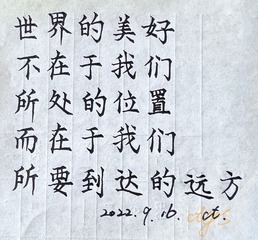 世界的美好
不在于我们
所处的位置
而在于我们
所要到达的远方
2022.9.16. ct